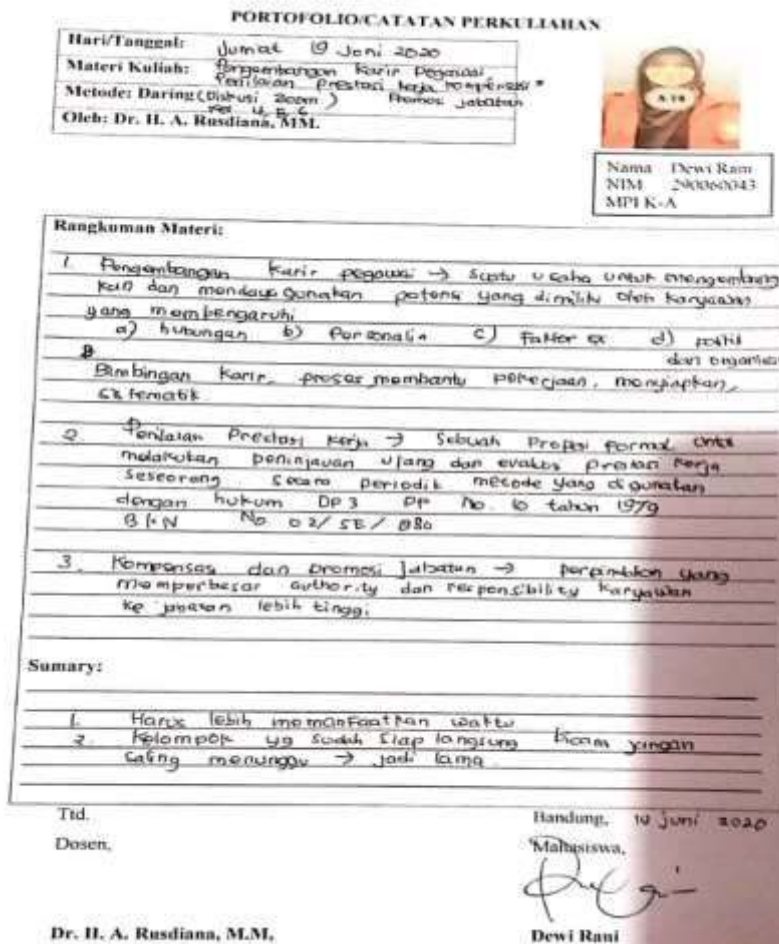 PORTOFOLIO/CATATAN PERKULIAHAN
Hari/Tanggal: Jumat 19 Juni 2020
Materi Kuliah: Pengembangan Karir Pegawai
Penilaian prestasi kerja kompensasi
Metode: Daring (Diskusi Zoom) Promosi jabatan
Oleh: Dr. H. A. Rusdiana, MM.
Nama Dewi Rani
NIM 290060043
MPI K-A
Rangkuman Materi:
1. Pengembangan Karir pegawai → Suatu usaha untuk mengembang
kan dan mendaya gunakan potensi yang dimiliki oleh karyawan
yang mempengaruhi
a) hubungan b) Personalia c) Faktor ex d) politik
dan organisasi
Bimbingan Karir, proses membantu pekerjaan, menyiapkan,
sistematik
2. Penilaian Prestasi Kerja → Sebuah Proses formal untk
melakukan peninjauan ulang dan evaluasi prestasi kerja
seseorang secara periodik metode yang digunakan
dengan hukum DP3 PP No. 10 tahun 1979
No 02/SE/
3. Kompensasi dan promosi jabatan → perpindahan yang
memperbesar authority dan responsibility karyawan
ke jabatan lebih tinggi.
Sumary:
1. Harus lebih memanfaatkan waktu
2. Kelompok yg sudah siap langsung bicara jangan
saling menunggu → jadi lama
Ttd. Bandung, 19 juni 2020
Dosen, Mahasiswa,
Dr. H. A. Rusdiana, M.M. Dewi Rani